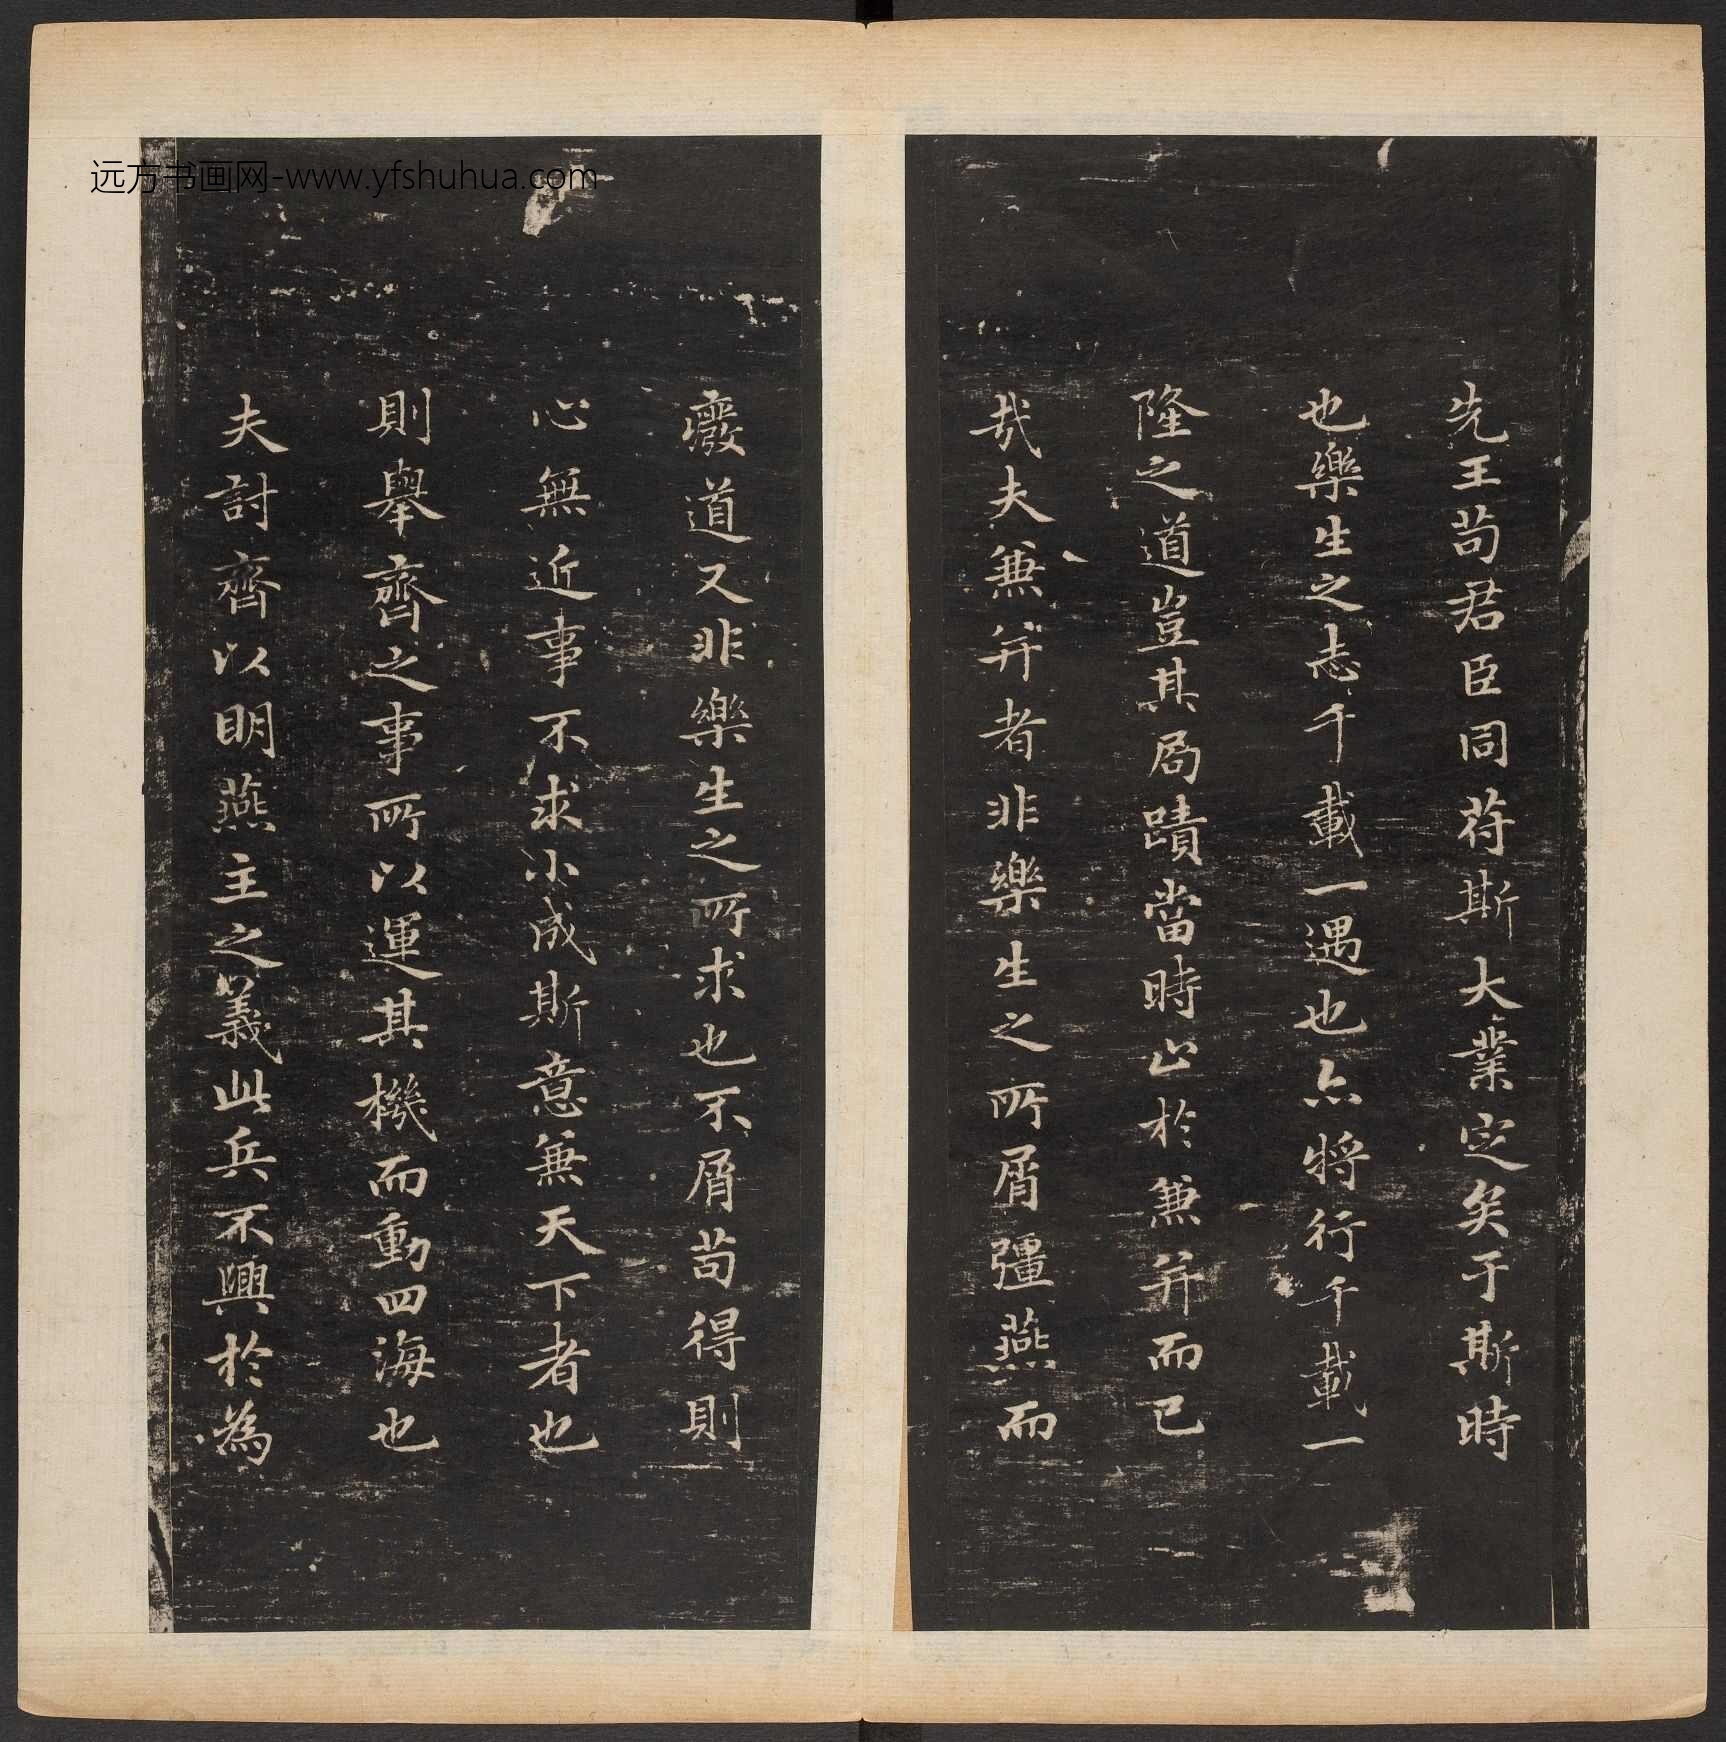 远方书画网-www.yfshuhua.com
先王苟君臣同苻斯大業定矣于斯時
也樂生之志千載一遇也亦將行千載一
隆之道豈其局蹟當時止於兼并而已
哉夫兼并者非樂生之所屑彊燕而
癈道又非樂生之所求也不屑苟得則
心無近事不求小成斯意兼天下者也
則舉齊之事所以運其機而動四海也
夫討齊以明燕主之義此兵不興於為